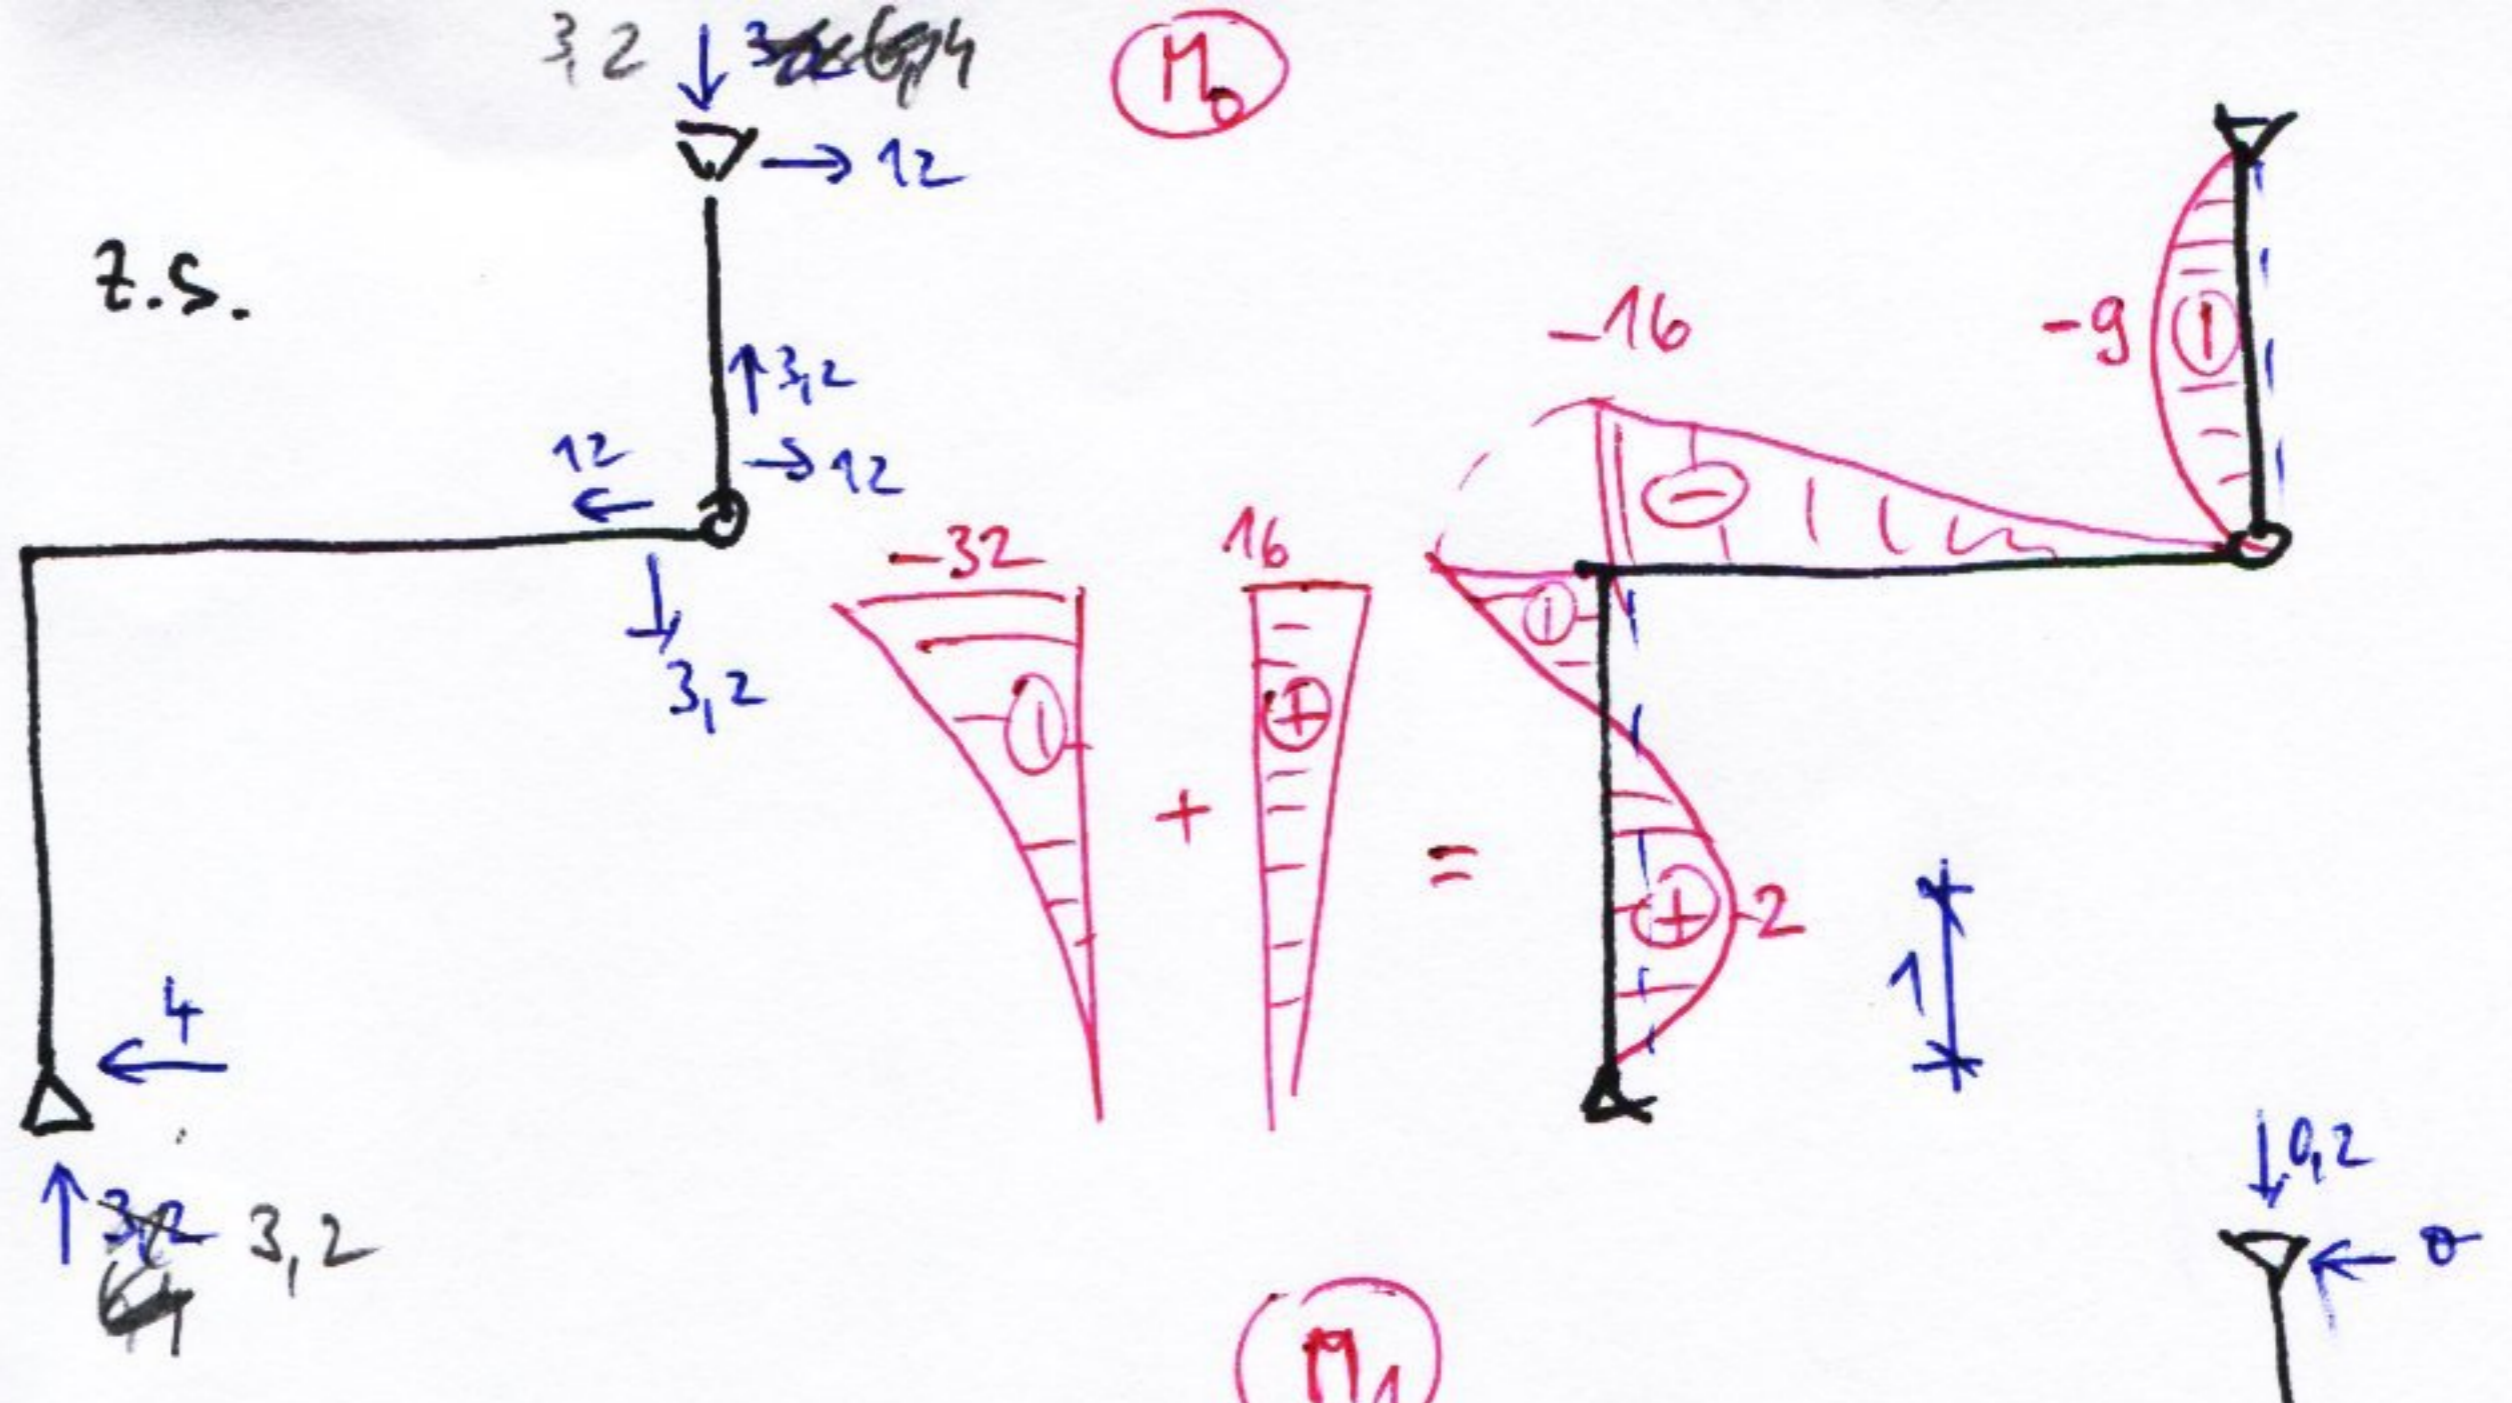 3,2 ↓
M₀
→ 12
z.s.
↑ 3,2
12 ←
→ 12
↓ 3,2
-16
-9
-32
16
+
=
2
1
← 4
↑ 3,2
↓ 0,2
← 0
M₁